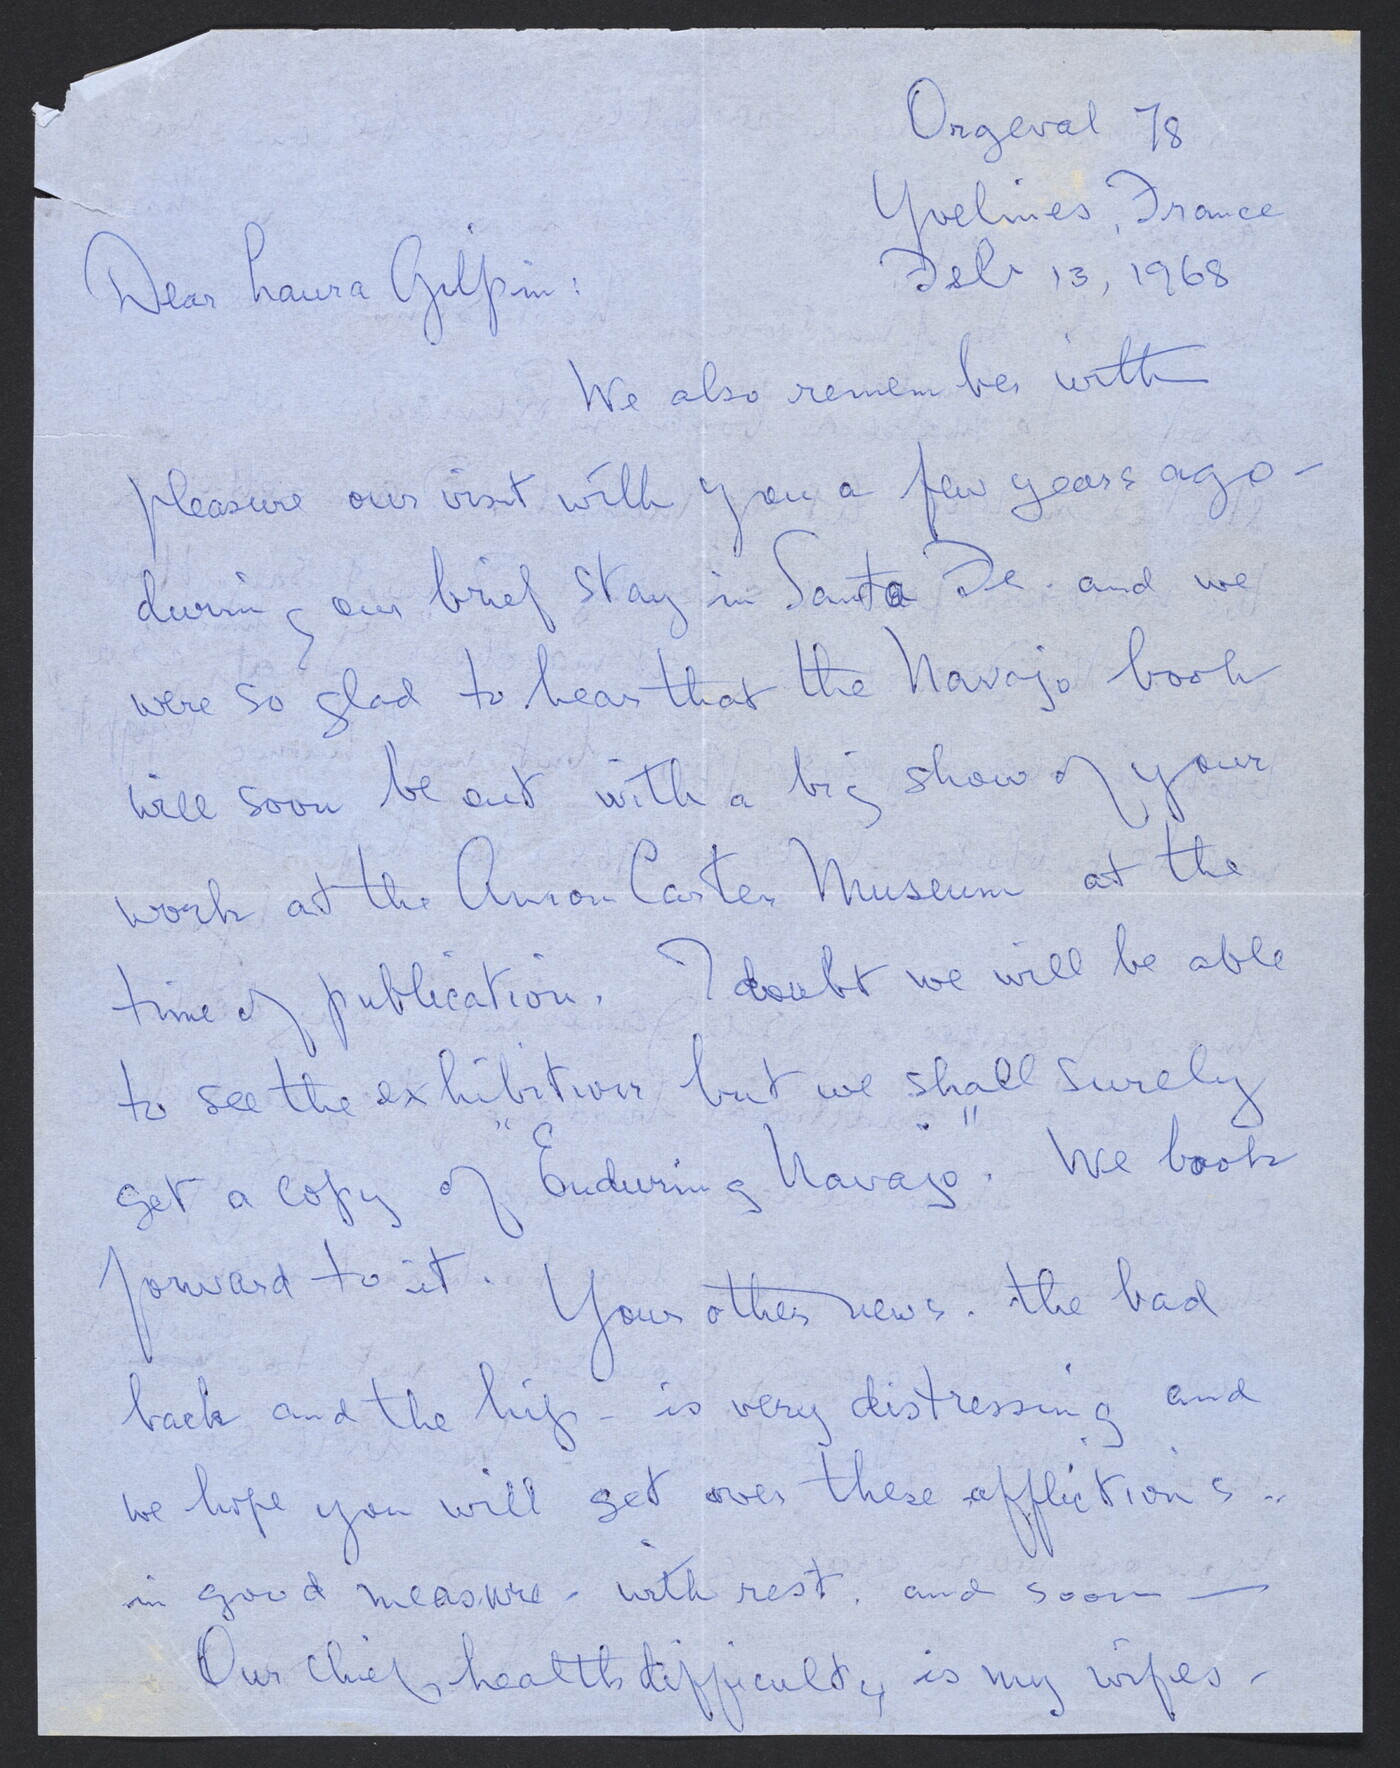 Orgeval 78
Yvelines, France
Feb 13, 1968
Dear Laura Gilpin:
We also remember with
pleasure our visit with you a few years ago -
during our brief stay in Santa Fe - and we
were so glad to hear that the Navajo book
will soon be out with a big show of your
work at the Amon Carter Museum at the
time of publication. I doubt we will be able
to see the exhibition but we shall surely
get a copy of "Enduring Navajo". We look
forward to it. Your other news - the bad
back and the hip - is very distressing and
we hope you will get over these afflictions -
in good measure - with rest, and soon —
Our chief health difficulty is my wifes -